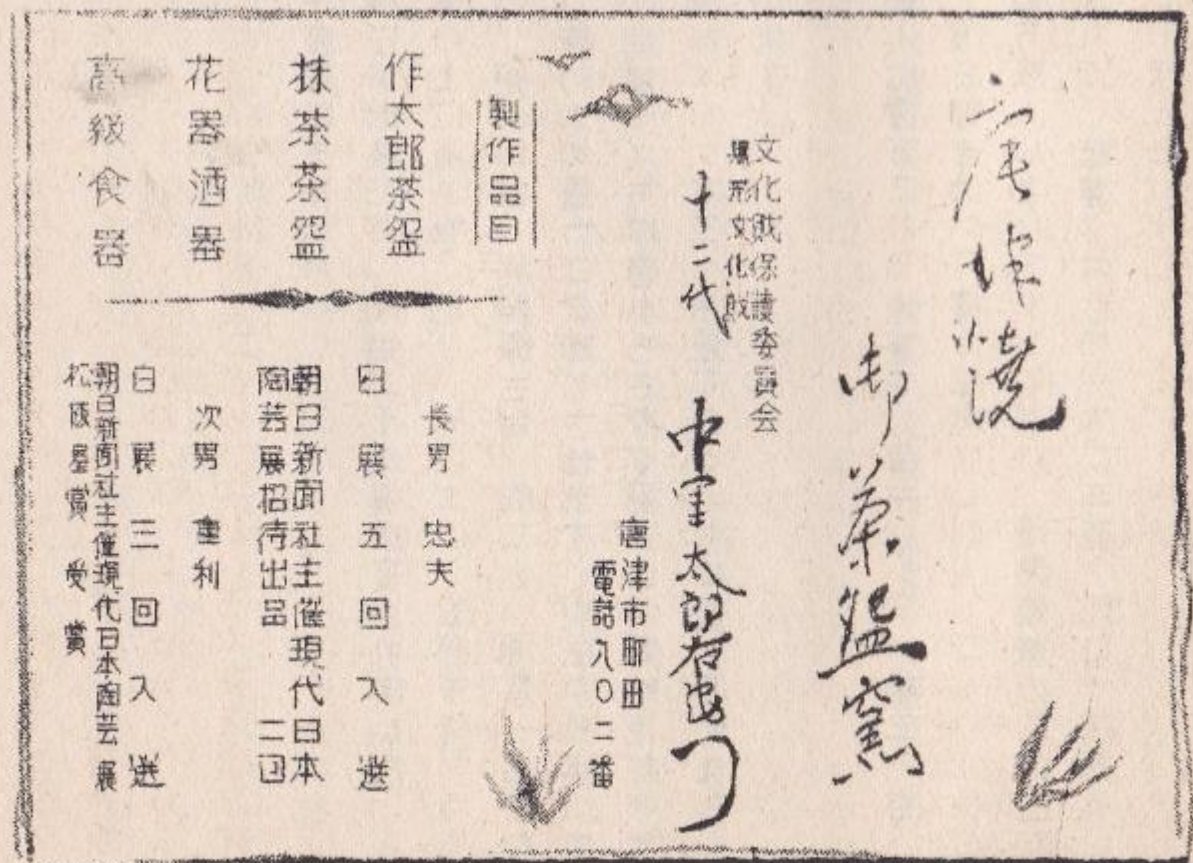 唐津焼
御茶盌窯
文化財保護委員会
無形文化財
十二代 中里太郎右衛門
唐津市町田
電話九〇二番
製作品目
作太郎茶盌
抹茶茶盌
花器酒器
高級食器
長男 忠夫
日展五回入選
朝日新聞社主催現代日本
陶芸展招待出品 二回
次男 重利
日展三回入選
朝日新聞社主催現代日本陶芸展
松坂屋賞 受賞